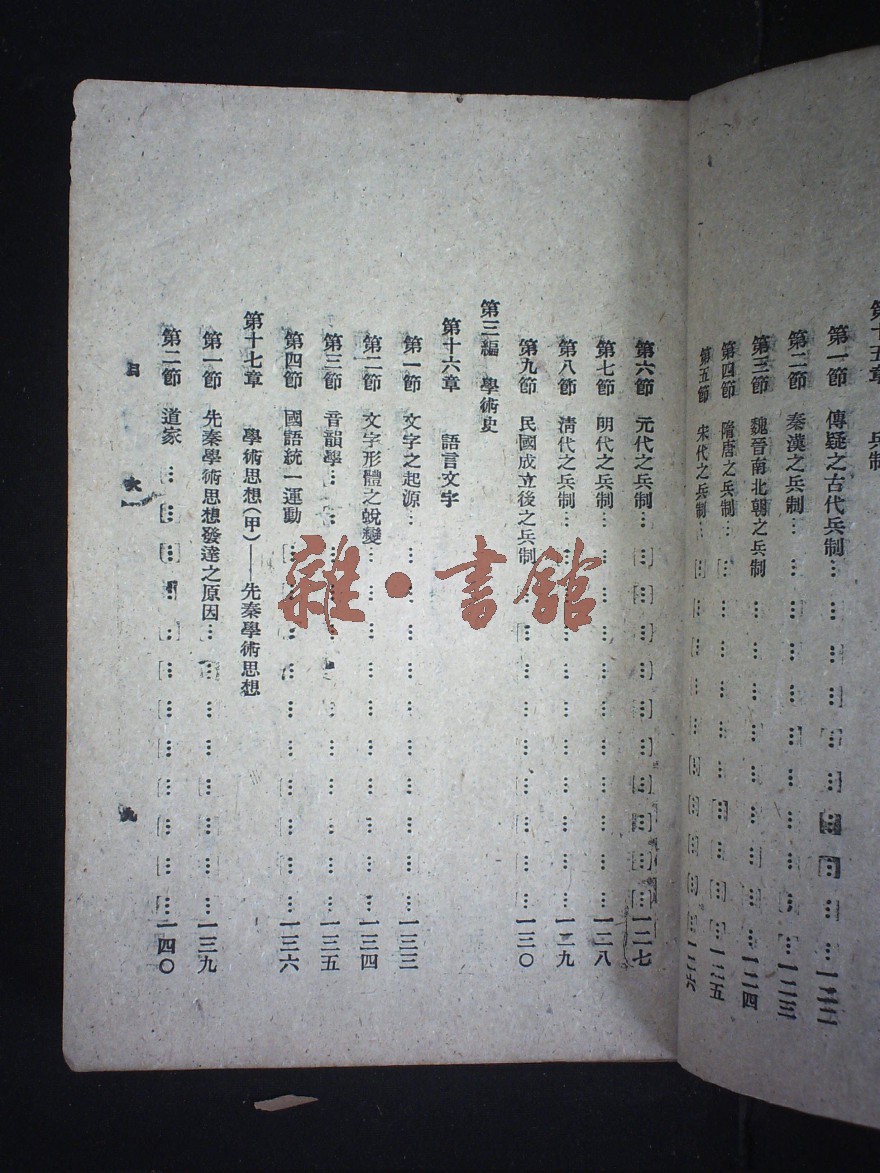 第十五章 兵制
第一節 傳疑之古代兵制………………………………一二二
第二節 秦漢之兵制………………………………一二三
第三節 魏晉南北朝之兵制………………………………一二四
第四節 隋唐之兵制………………………………一二五
第五節 宋代之兵制………………………………一二六
第六節 元代之兵制………………………………一二七
第七節 明代之兵制………………………………一二八
第八節 清代之兵制………………………………一二九
第九節 民國成立後之兵制………………………………一三〇
第三編 學術史
第十六章 語言文字
第一節 文字之起源………………………………一三三
第二節 文字形體之蛻變………………………………一三四
第三節 音韻學………………………………一三五
第四節 國語統一運動………………………………一三六
第十七章 學術思想(甲)——先秦學術思想
第一節 先秦學術思想發達之原因………………………………一三九
第二節 道家………………………………一四〇
目 次 九
雜·書館